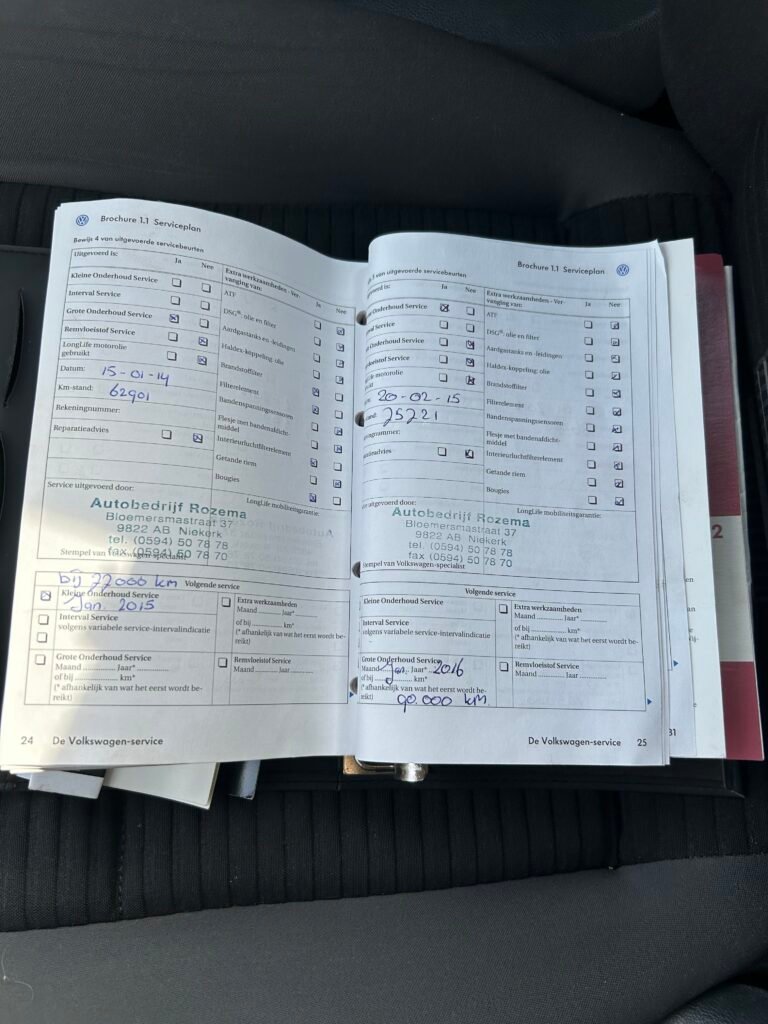 Brochure 1.1 Serviceplan
Bewijs 4 van uitgevoerde servicebeurten
Uitgevoerd is:
Ja Nee
Extra werkzaamheden - Ver-
vanging van:
Ja Nee
Kleine Onderhoud Service
ATF
Interval Service
DSG®, olie en filter
Grote Onderhoud Service
Aardgastanks en -leidingen
Remvloeistof Service
Haldex-koppeling: olie
LongLife motorolie
gebruikt
Brandstoffilter
Datum: 15-01-14
Filterelement
Km-stand: 62901
Bandenspanningssensoren
Rekeningnummer:
Flesje met bandenafdicht-
middel
Reparatieadvies
Interieurluchtfilterelement
Getande riem
Bougies
Service uitgevoerd door:
LongLife mobiliteitsgarantie:
Autobedrijf Rozema
Bloemersmastraat 37
9822 AB Niekerk
tel. (0594) 50 78 78
fax (0594) 50 78 70
Stempel van Volkswagen-specialist
bij 77000 km
Volgende service
Kleine Onderhoud Service
Jan. 2015
Extra werkzaamheden
Maand Jaar*
of bij km*
(* afhankelijk van wat het eerst wordt be-
reikt)
Interval Service
volgens variabele service-intervalindicatie
Grote Onderhoud Service
Maand Jaar*
of bij km*
(* afhankelijk van wat het eerst wordt be-
reikt)
Remvloeistof Service
Maand Jaar
24 De Volkswagen-service
Brochure 1.1 Serviceplan
van uitgevoerde servicebeurten
Ja Nee
Extra werkzaamheden - Ver-
vanging van:
Ja Nee
Onderhoud Service
ATF
Service
DSG®, olie en filter
Onderhoud Service
Aardgastanks en -leidingen
Service
Haldex-koppeling: olie
motorolie
Brandstoffilter
20-02-15
Filterelement
75221
Bandenspanningssensoren
Flesje met bandenafdicht-
middel
Interieurluchtfilterelement
Getande riem
Bougies
uitgevoerd door:
LongLife mobiliteitsgarantie:
Autobedrijf Rozema
Bloemersmastraat 37
9822 AB Niekerk
tel. (0594) 50 78 78
fax (0594) 50 78 70
Stempel van Volkswagen-specialist
Volgende service
Kleine Onderhoud Service
Extra werkzaamheden
Maand Jaar*
of bij km*
(* afhankelijk van wat het eerst wordt be-
reikt)
Interval Service
volgens variabele service-intervalindicatie
Grote Onderhoud Service
Maand Jan. Jaar* 2016
of bij km*
(* afhankelijk van wat het eerst wordt be-
reikt) 90.000 km
Remvloeistof Service
Maand Jaar
De Volkswagen-service 25
31
2